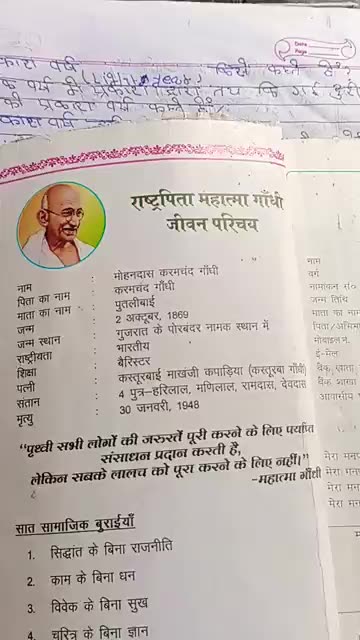 काश वर्ष
Date
Page
राष्ट्रपिता महात्मा गाँधी
जीवन परिचय
नाम : मोहनदास करमचंद गाँधी
पिता का नाम : करमचंद गाँधी
माता का नाम : पुतलीबाई
जन्म : 2 अक्टूबर, 1869
जन्म स्थान : गुजरात के पोरबंदर नामक स्थान में
राष्ट्रीयता : भारतीय
शिक्षा : बैरिस्टर
पत्नी : कस्तूरबाई माखंजी कपाड़िया (कस्तूरबा गाँधी)
संतान : 4 पुत्र-हरिलाल, मणिलाल, रामदास, देवदास
मृत्यु : 30 जनवरी, 1948
“पृथ्वी सभी लोगों की जरुरतें पूरी करने के लिए पर्याप्त
संसाधन प्रदान करती है,
लेकिन सबके लालच को पूरा करने के लिए नहीं।”
-महात्मा गाँधी
सात सामाजिक बुराईयाँ
1. सिद्धांत के बिना राजनीति
2. काम के बिना धन
3. विवेक के बिना सुख
4. चरित्र के बिना ज्ञान
नाम
वर्ग
नामांकन सं०
जन्म तिथि
माता का नाम
मोबाइल नं.
ई-मेल
बैंक शाखा
मेरा
मेरा
मेरा
मेरा